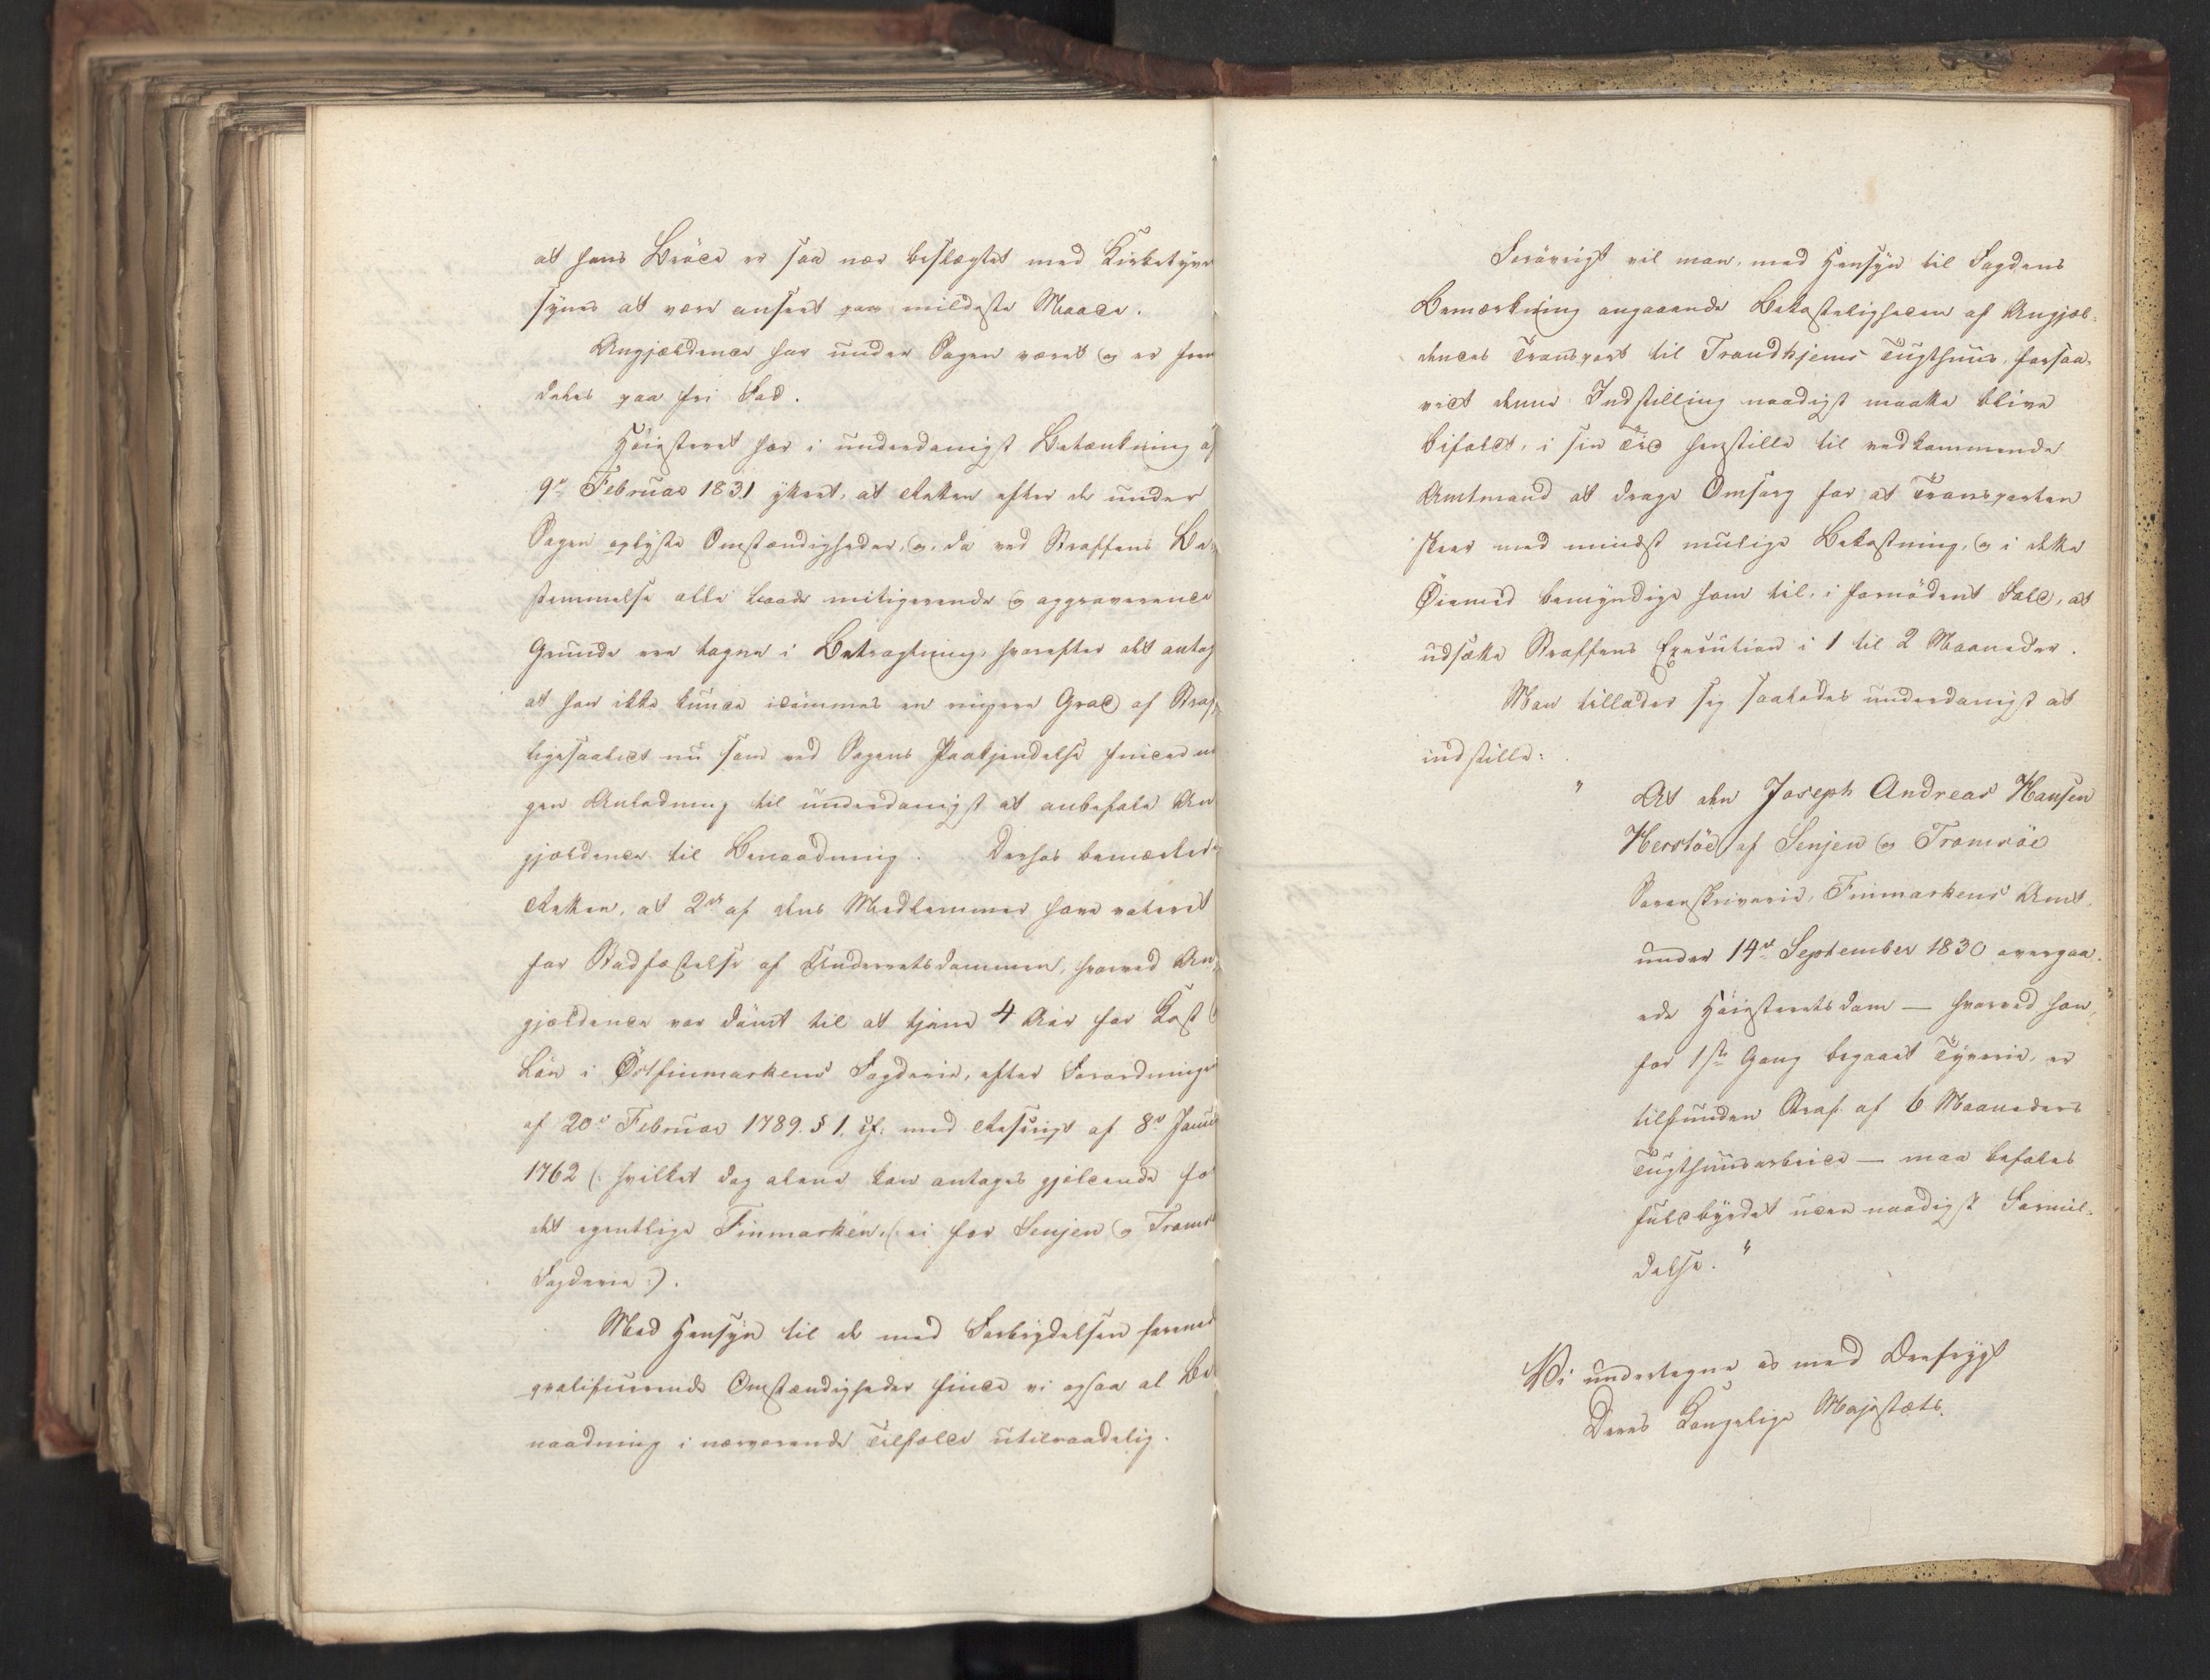 at hans Bröde er saa nær beslægtet med Kirketyve
synes at være anseet paa mildeste Maade.
Angjældende har under Sagen været og er frem
deles paa fri Fod.
Höiesteret har i underdanigst Betænkning af
9de Februar 1831 yttret, at Retten efter de under
Sagen oplyste Omstændigheder, og, da ved Straffens Be-
stemmelse alle baade mitigerende og aggraverende
Grunde ere tagne i Betragtning, hvorefter det antog
at han ikke kunde idömmes en ringere Grad af Straf,
ligesaalidet nu som ved Sagens Paakjendelse finder no
gen Anledning til underdanigst at anbefale An
gjældende til Benaadning. Derhos bemærker
Retten, at 2de af dens Medlemmer have voteret
for Stadfæstelse af Underretsdommen, hvorved An-
gjældende var dömt til at tjene 4 Aar for Kost og
Lön i Östfinmarkens Fogderie, efter Forordningen
af 20de Februar 1789. § 1, cf. med Rescript af 8de Janua
1762 (: hvilket dog alene kan antages gjeldende for
det egentlige Finmarken, (ei for Senjen og Troms
Fogderie :).
Med Hensyn til de med Forbrydelsen forened
qvalificerende Omstændigheder finde vi ogsaa al Be
naadning i nærværende Tilfælde utilraadelig.
Forövrigt vil man, med Hensyn til Fogdens
Bemærkning angaaende Bekosteligheden af Angjæl-
dendes Transport til Trondhjems Tugthuus, forsaa-
vidt denne Indstilling naadigst maatte blive
bifaldt, i sin Tid henstille til vedkommende
Amtmand at drage Omsorg for at Transporten
skeer med mindst mulige Bekostning, og i dette
Öiemed bemyndige ham til, i fornödent Fald, at
udsætte Straffens Execution i 1 til 2 Maaneder.
Man tillader sig saaledes underdanigst at
indstille:
" At den Joseph Andreas Hansen
Herstöe af Senjen og Tromsöe
Sorenskriverie, Finmarkens Amt,
under 14de September 1830 overgaa-
ede Höiesteretsdom — hvorved han,
for 1ste Gang begaaet Tyverie, er
tilfunden Straf af 6 Maaneders
Tugthuusarbeide — maa befales
fuldbyrdet uden naadigst Formil-
delse. "
Vi undertegne os med Ærefrygt
Deres Kongelige Majestæts.